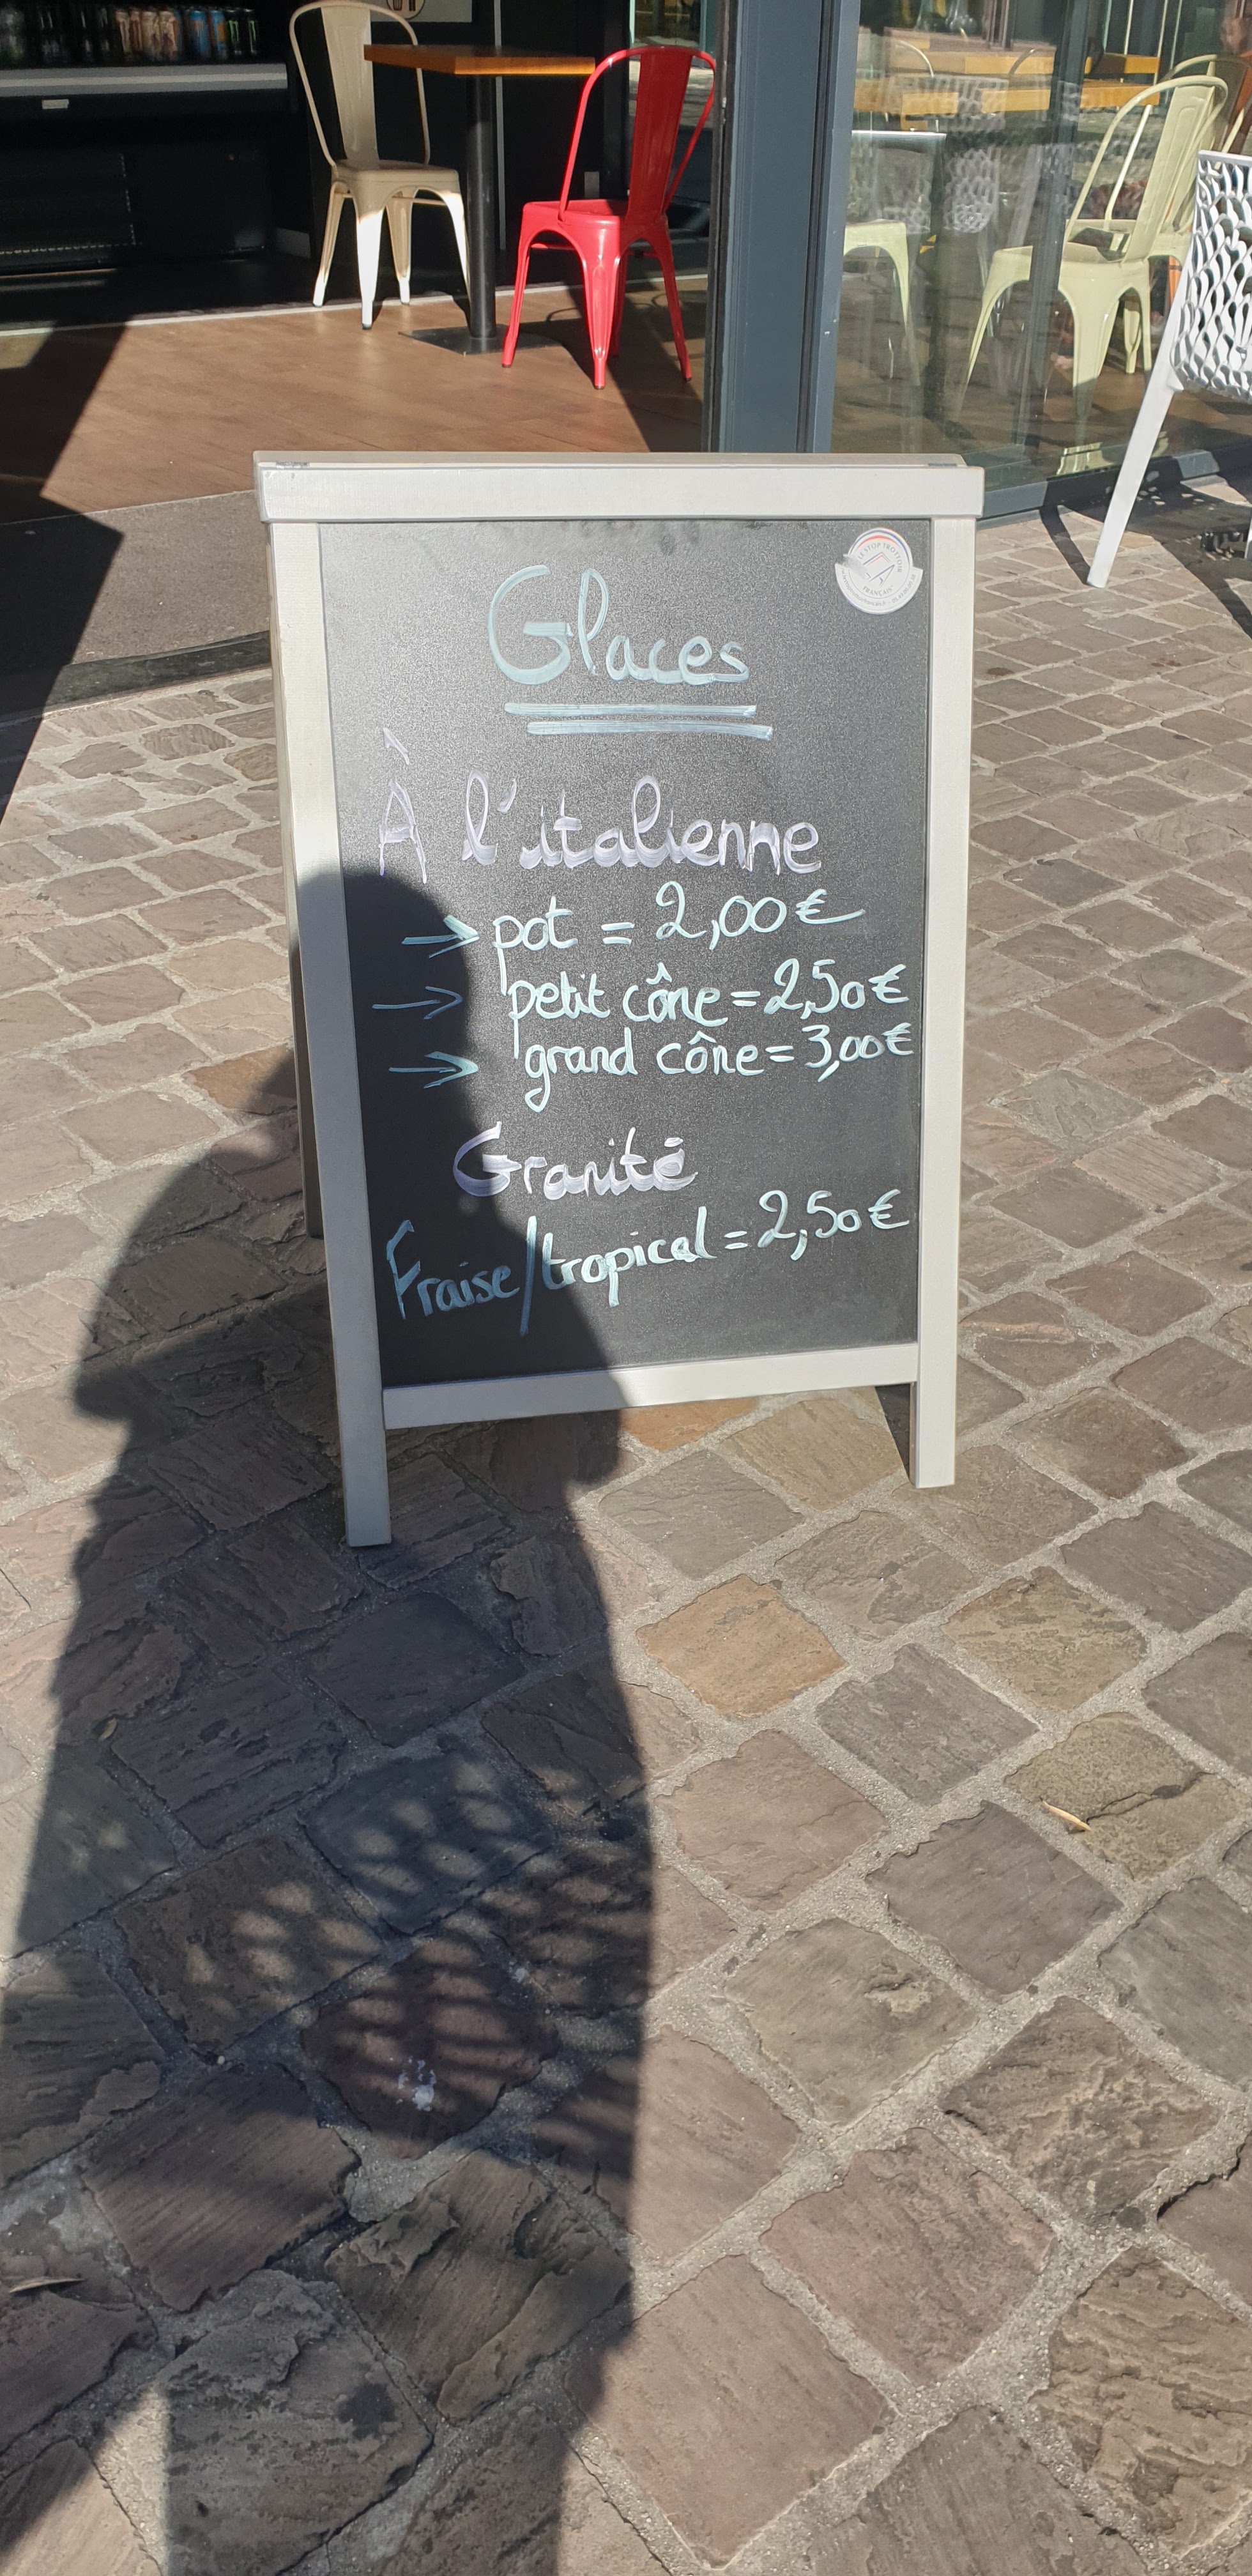 LE STOP TROTTOIR
FRANÇAIS
Glaces
À l'italienne
→ pot = 2,00€
→ petit cône = 2,50€
→ grand cône = 3,00€
Granité
Fraise/tropical = 2,50€